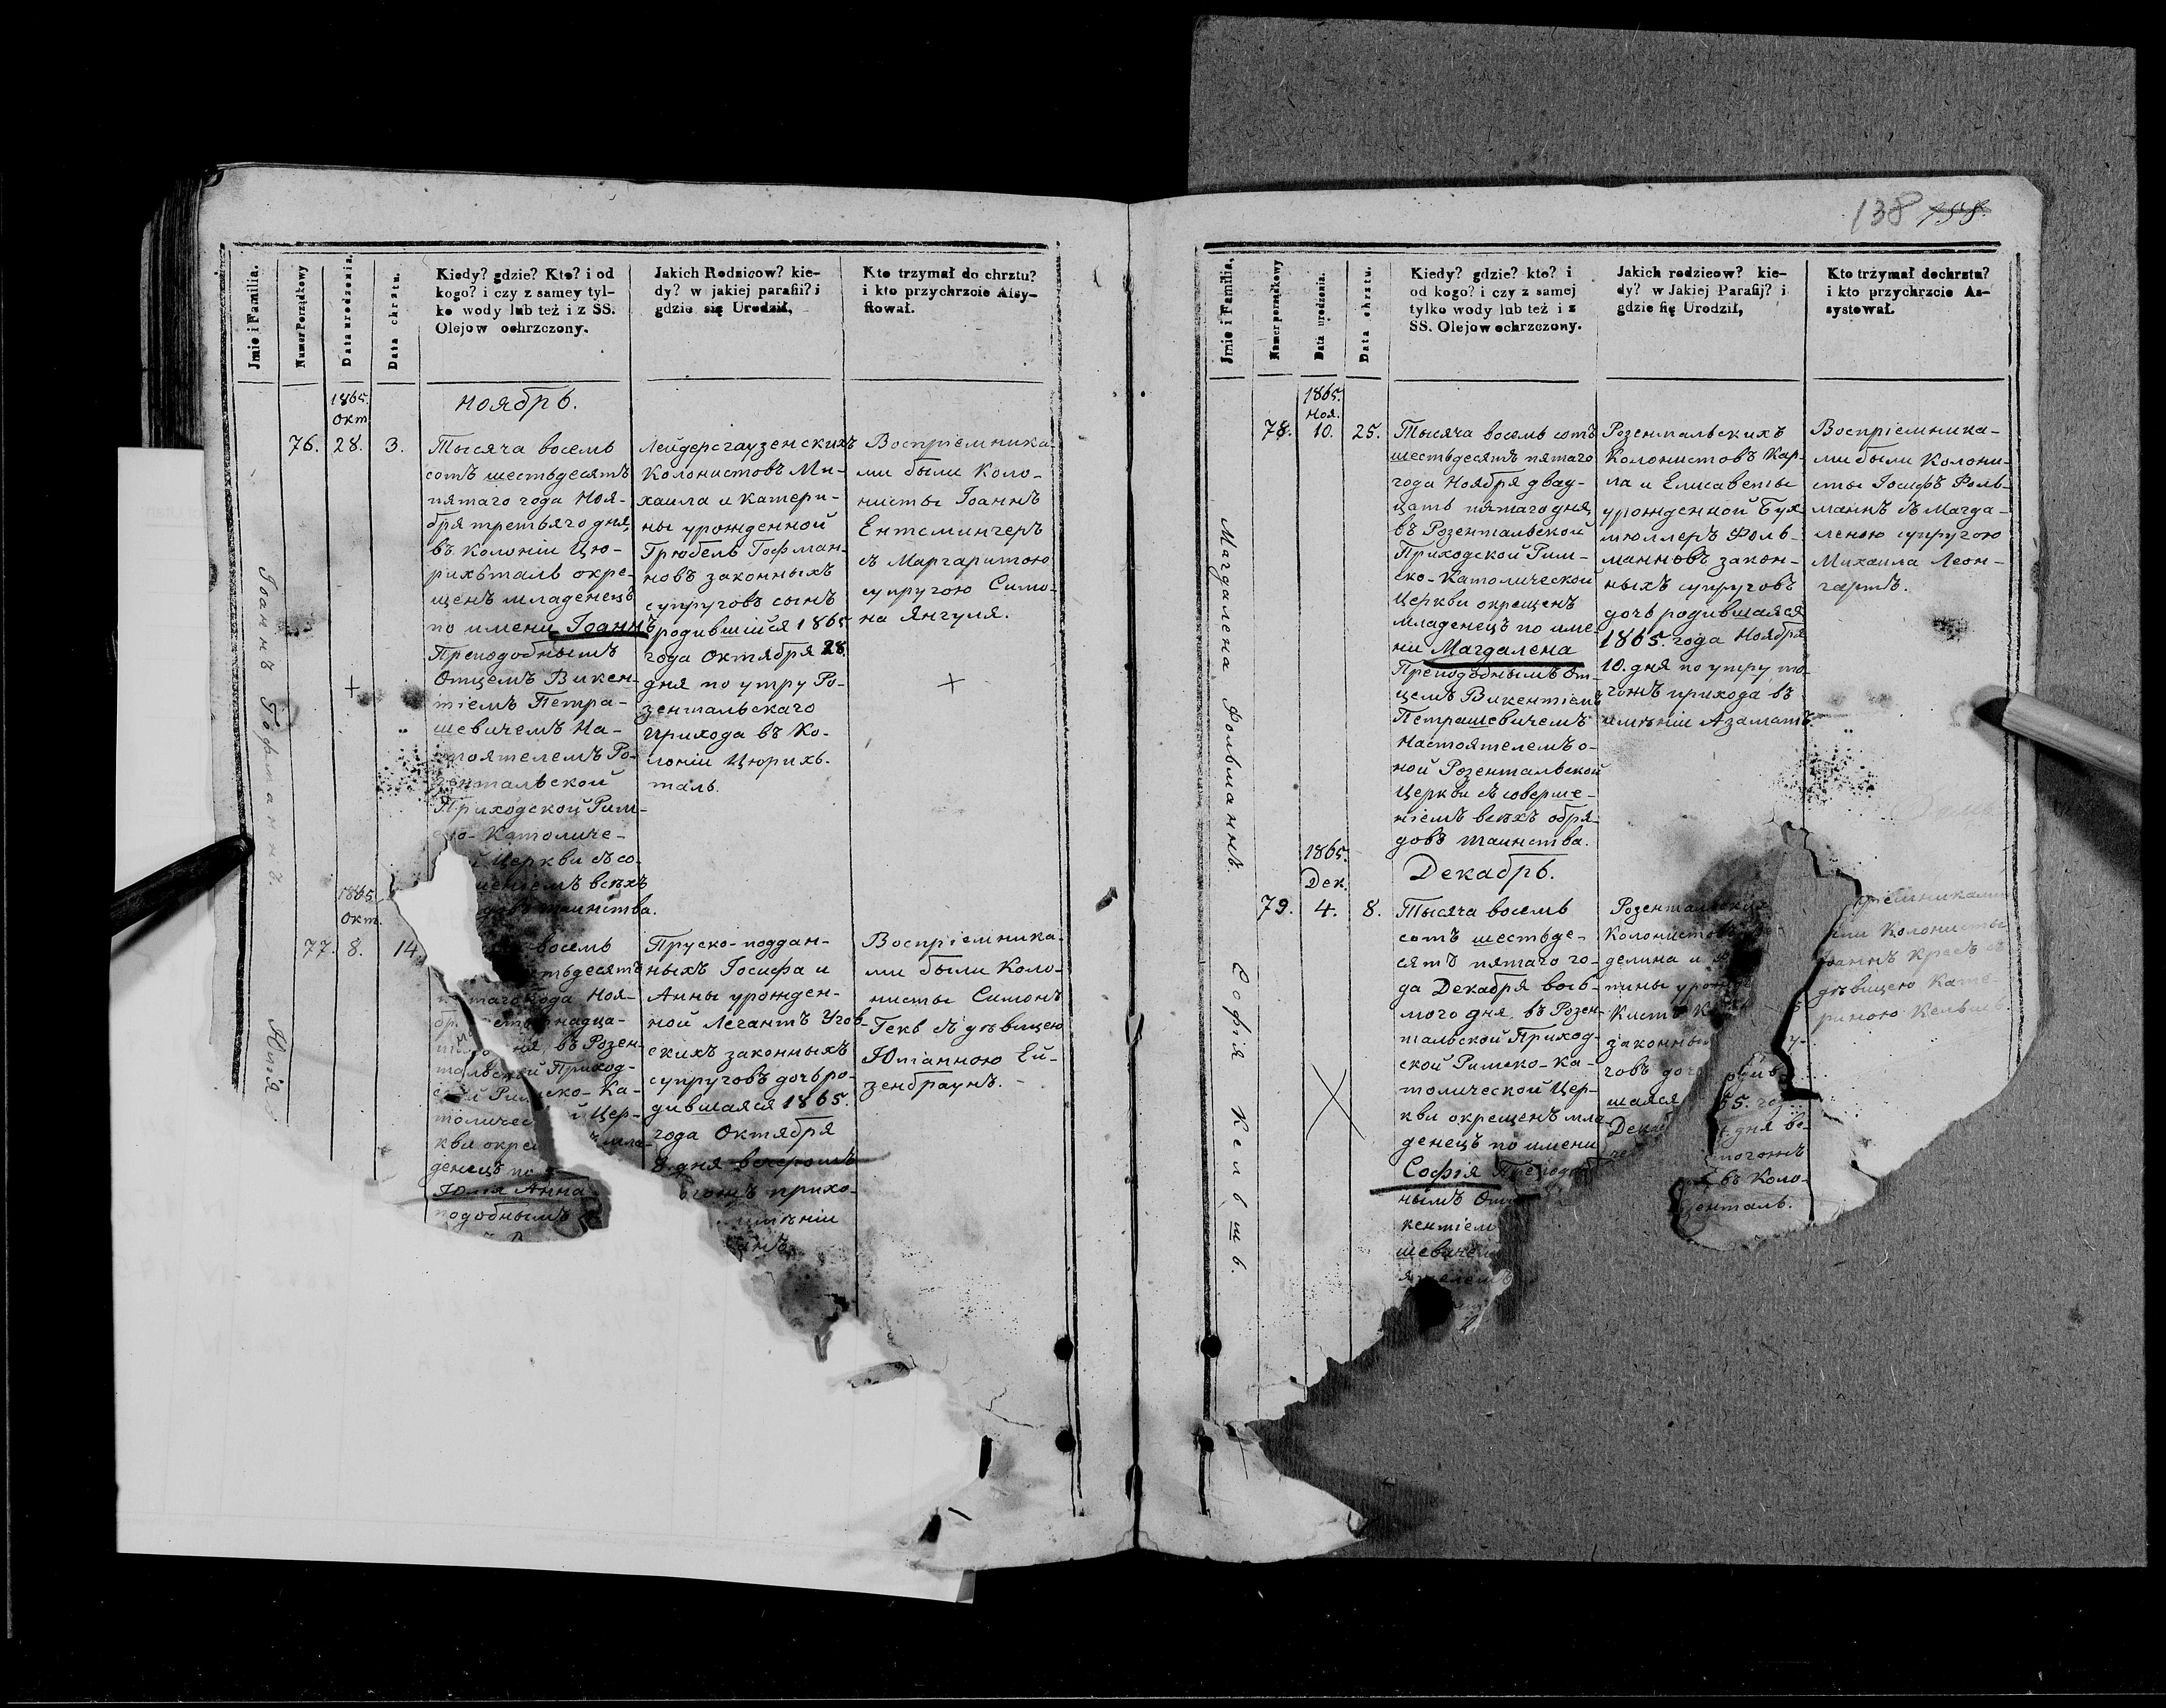 138 138.
Jmie i Familia.
Numer Porządkowy
Data urodzenia.
Data chrztu.
Kiedy? gdzie? Kto? i od
kogo? i czy z samey tyl-
ko wody lub też i z SS.
Olejow ochrzczony.
Jakich Rodzicow? kie-
dy? w jakiej parafii? i
gdzie się Urodził,
Kto trzymał do chrztu?
i kto przychrzcie Assy-
stował.
Іоаннъ Гофманнъ.
1865.
Окт
76. 28. 3.
Ноябрь.
Тысяча восемь
сотъ шестьдесятъ
пятаго года Ноя-
бря третьяго дня,
въ колоніи Цю-
рихталь окре-
щенъ младенецъ
по имени Іоаннъ
Преподобнымъ
Отцемъ Викен-
тіемъ Петра-
шевичемъ На-
стоятелемъ Ро-
зентальской
Приходской Рим-
ско-Католиче-
Церкви съ со-
всѣхъ
таинства.
Лейдерсгаузенскихъ
Колонистовъ Ми-
хаила и Катери-
ны урожденной
Грюбель Гофман-
новъ законныхъ
супруговъ сынъ
родившійся 1865
года Октября 28.
дня по утру Ро-
зентальскаго
прихода въ Ко-
лоніи Цюрихъ-
таль.
Воспріемника-
ми были Коло-
нисты Іоаннъ
Ентемингеръ
съ Маргаритою
супругою Симо-
на Янгуля.
Юлія
1865
Окт.
77. 8. 14.
восемь
года Ноя-
въ Розен-
тальской Приход-
Ка-
Цер-
кви
денецъ по
Юлія Анна
подобнымъ
Пруско-поддан-
ныхъ Іосифа и
Анны урожден-
ной Легантъ Угов-
скихъ законныхъ
супруговъ дочь ро-
дившаяся 1865.
года Октября
8 дня вечеромъ
прихо-
имѣніи
Воспріемника-
ми были Коло-
нисты Симонъ
Гекъ съ дѣвицею
Юганною Ей-
зенбраунъ.
Jmie i Familia.
Numer porządkowy
Data urodzenia.
Data chrztu.
Kiedy? gdzie? kto? i
od kogo? i czy z samej
tylko wody lub też i z
SS. Olejow ochrzczony.
Jakich rodzicow? kie-
dy? w Jakiej Parafij? i
gdzie się Urodził,
Kto trzymał dochrztu?
i kto przychrzcie As-
systował.
Магдалена Фольманнъ.
1865.
Ноя.
78. 10. 25.
Тысяча восемь сотъ
шестьдесятъ пятаго
года Ноября двад-
цать пятаго дня,
въ Розентальской
Приходской Рим-
ско-Католической
Церкви окрещенъ
младенецъ по име-
ни Магдалена
Преподобнымъ От-
цемъ Викентіемъ
Петрашевичемъ
Настоятелемъ о-
ной Розентальской
Церкви съ соверше-
ніемъ всѣхъ обря-
довъ таинства.
Розентальскихъ
Колонистовъ Кар-
ла и Елисаветы
урожденной Бух-
мюллеръ Фоль-
манновъ закон-
ныхъ супруговъ
дочь родившаяся
1865. года Ноября
10. дня по утру то-
гожъ прихода въ
имѣніи Азаматъ.
Воспріемника-
ми были Колони-
сты Іосифъ Фоль-
манъ съ Магда-
леною супругою
Михаила Леон-
гартъ.
Софія Кельшъ.
1865.
Дек.
79. 4. 8.
Декабрь.
Тысяча восемь
сотъ шестьде-
сятъ пятаго го-
да Декабря вось-
мого дня, въ Розен-
тальской Приход-
ской Римско-Ка-
толической Цер-
кви окрещенъ мла-
денецъ по имени
Софія Преподоб-
нымъ
кентіем
шевичем
Розентальскихъ
Колонистовъ
делина и
тины
Кистъ
законных
говъ
шаяся 65.
дня ве-
тогожъ
въ Коло-
зенталь.
Колонисты
Кресъ съ
дѣвицею Кате-
риною Кельшъ.